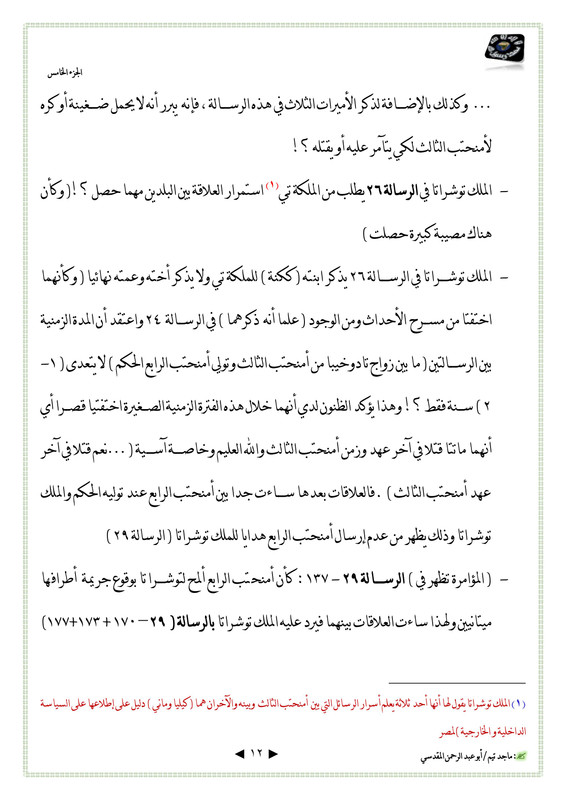 الجزء الخامس
... وكذلك بالإضافة لذكر الأميرات الثلاث في هذه الرسالة ، فإنه يبرر أنه لا يحمل ضغينة أو كره
لأمنحتب الثالث لكي يتآمر عليه أو يقتله ؟ !
– الملك توشراتا في الرسالة ٢٦ يطلب من الملكة تي(١) استمرار العلاقة بين البلدين مهما حصل ؟ ! ( وكأن
هناك مصيبة كبيرة حصلت )
– الملك توشراتا في الرسالة ٢٦ يذكر ابنته ( ككنة ) للملكة تي ولا يذكر أخته وعمته نهائيا ( وكأنهما
اختفتا من مسرح الأحداث ومن الوجود ( علما أنه ذكرهما ) في الرسالة ٢٤ واعتقد أن المدة الزمنية
بين الرسالتين ( ما بين زواج تادوخيبا من أمنحتب الثالث وتولى أمنحتب الرابع الحكم ) لا يتعدى ( ١–
٢ ) سنة فقط ؟ ! وهذا يؤكد الظنون لدي أنهما خلال هذه الفترة الزمنية الصغيرة اختفتيا قصرا أي
أنهما ماتتا قتلا في آخر عهد وزمن أمنحتب الثالث والله العليم وخاصة آسية ( ... نعم قتلا في آخر
عهد أمنحتب الثالث ) . فالعلاقات بعدها ساءت جدا بين أمنحتب الرابع عند توليه الحكم والملك
توشراتا وذلك يظهر من عدم إرسال أمنحتب الرابع هدايا للملك توشراتا ( الرسالة ٢٩ )
– ( المؤامرة تظهر في ) الرسالة ٢٩ – ١٣٧ : كأن أمنحتب الرابع ألمح لتوشراتا بوقوع جريمة أطرافها
ميتانيين ولهذا ساءت العلاقات بينهما فيرد عليه الملك توشراتا بالرسالة ( ٢٩ – ١٧٠ + ١٧٣+١٧٧)
(١) الملك توشراتا يقول لها أنها أحد ثلاثة يعلم أسرار الرسائل التي بين أمنحتب الثالث وبينه والآخران هما ( كيليا وماني ) دليل على إطلاعها على السياسة
الداخلية و الخارجية ) لمصر
: ماجد تيم / أبو عبد الرحمن المقدسي
◄ ١٢ ►